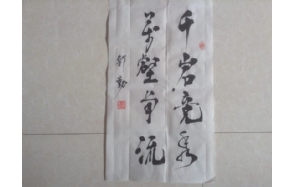 千岩竞秀
万壑争流